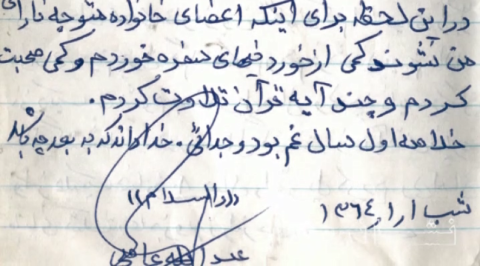 در این لحظه برای اینکه اعضای خانواده متوجه ناراحتی
من نشوند کمی از خوردنیهای سفره خوردم و کمی صحبت
کردم و چند آیه قرآن تلاوت کردم.
خلاصه اول سال غم بود و جدائی. خدا داند که به بعد چه باشد
((والسلام))
شب ۱ر۱ر۱۳۶۴
عبدالله